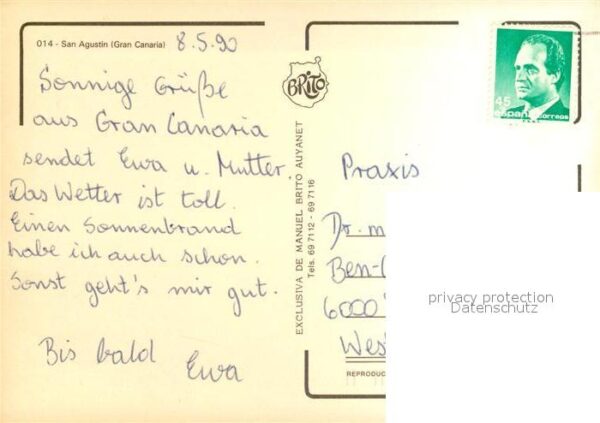 014 - San Agustin (Gran Canaria)
8.5.90
Sonnige Grüße
aus Gran Canaria
sendet Ewa u. Mutter.
Das Wetter ist toll.
Einen Sonnenbrand
habe ich auch schon.
Sonst geht's mir gut.
Bis bald
Ewa
BRITO
EXCLUSIVA DE MANUEL BRITO AUYANET
Tels. 69 7112 - 69 7116
45
españa correos
Praxis
Dr. m
Ben-
6000
Wes
REPRODUC
privacy protection
Datenschutz